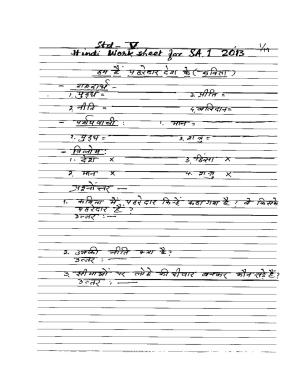 Std - V
Hindi Work sheet for SA 1 2013
हम हैं पहरेदार देश के (कविता)
- शब्दार्थ -
1. युद्ध = 2. प्रीति =
2. नीति = 4. बलिदान =
- पर्यायवाची : 1. मान =
2. युद्ध = 3. शत्रु =
- विलोम :
1. देश x 3. हिंसा x
2. मान x 4. शत्रु x
प्रश्नोत्तर -
1. कविता में पहरेदार किन्हें कहा गया है? वे किसके
पहरेदार हैं?
उत्तर :
2. उनकी नीति क्या है?
उत्तर :
3. सीमाओं पर लोहे की दीवार बनकर कौन खड़े हैं?
उत्तर :